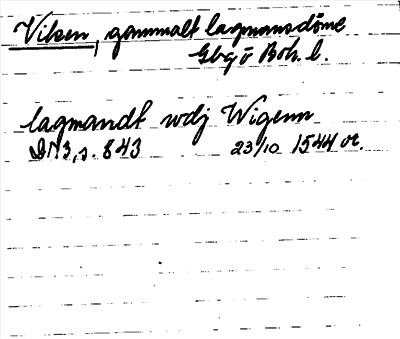 Viken, gammalt lagmansdöme
Gbg o Boh. l.
lagmandt wdj Wigenn
DN3, s. 843 23/10 1544 or.